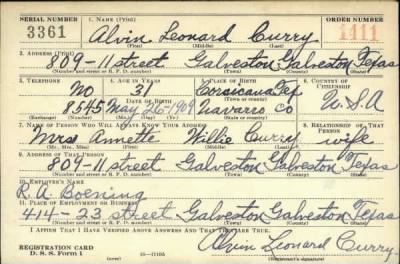 SERIAL NUMBER 1. NAME (Print) ORDER NUMBER
3361 Alvin Leonard Curry 1411
(First) (Middle) (Last)
2. ADDRESS (Print)
809-11 street Galveston Galveston Texas
(Number and street or R. F. D. number) (Town) (County) (State)
3. TELEPHONE 4. AGE IN YEARS 5. PLACE OF BIRTH 6. COUNTRY OF CITIZENSHIP
No 31 Corsicana Tex
DATE OF BIRTH
8545 May 26-1909 Navarro Co U.S.A
(Exchange) (Number) (Mo.) (Day) (Yr.) (State or country)
7. NAME OF PERSON WHO WILL ALWAYS KNOW YOUR ADDRESS 8. RELATIONSHIP OF THAT PERSON
Mrs Annette Willie Curry wife
(Mr., Mrs., Miss) (First) (Middle) (Last)
9. ADDRESS OF THAT PERSON
809-11 street Galveston Galveston Texas
(Number and street or R. F. D. number) (Town) (County) (State)
10. EMPLOYER'S NAME
R. A. Boening
11. PLACE OF EMPLOYMENT OR BUSINESS
414-23 street Galveston Galveston Texas
(Number and street or R. F. D. number) (Town) (County) (State)
I AFFIRM THAT I HAVE VERIFIED ABOVE ANSWERS AND THAT THEY ARE TRUE.
REGISTRATION CARD
D. S. S. Form 1 16-17105 Alvin Leonard Curry
(Registrant's signature)